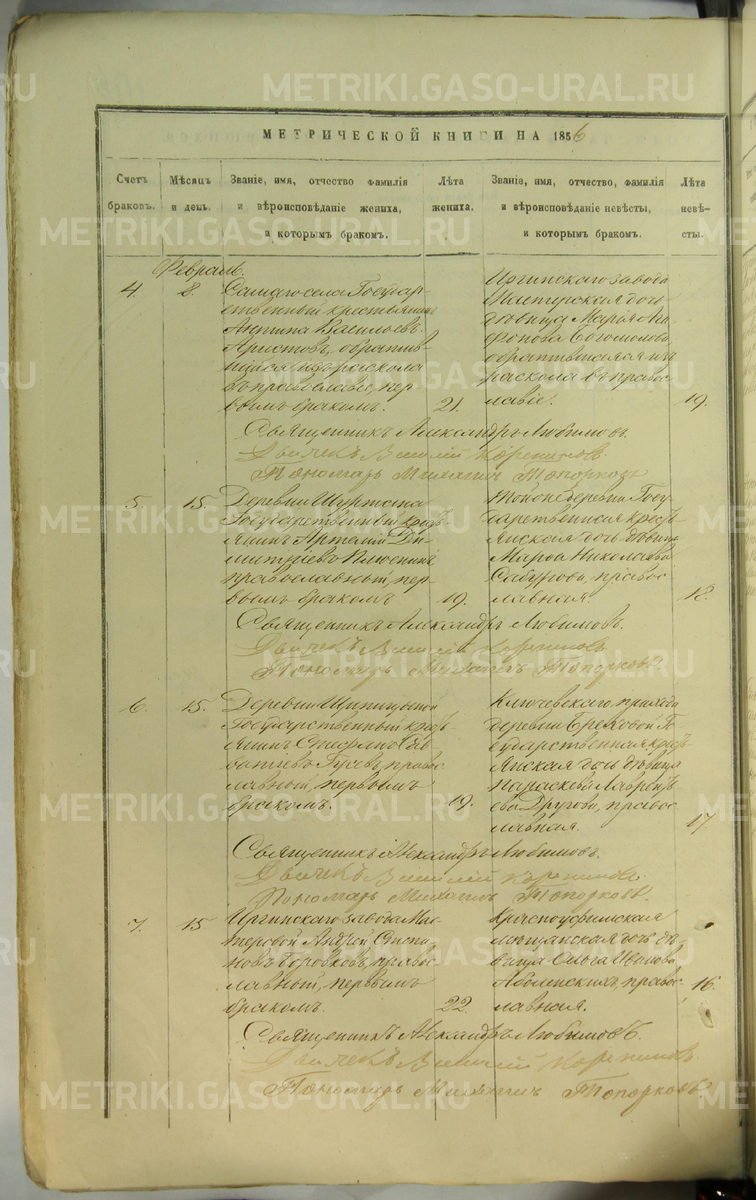 МЕТРИЧЕСКОЙ КНИГИ НА 1856
Счетъ браковъ.
Мѣсяцъ и день.
Званіе, имя, отчество фамилія
и вѣроисповѣданіе жениха,
и которымъ бракомъ.
Лѣта жениха.
Званіе, имя, отчество, фамилія
и вѣроисповѣданіе невѣсты,
и которымъ бракомъ.
Лѣта невѣ-
сты.
Февраль.
4. 8.
Самаго села Государ-
ственный крестьянинъ
Антипа Василіевъ
Аристовъ, обратив-
шійся изъ раскола
въ православіе, пер-
вымъ бракомъ.
21.
Иргинскаго завода
Мастерская дочь
дѣвица Марья
Богомолова,
обратившаяся изъ
раскола въ правос-
лавіе.
19.
Священникъ Александръ Любимовъ.
Дьячекъ Василій Корепановъ.
Пономарь Михаилъ Топорковъ
5. 15.
Деревни Шуртана
Государственный кресть-
янинъ Артемій Ди-
митріевъ Плюснинъ
православный, пер-
вымъ бракомъ
19.
Тойже деревни Госу-
дарственная кресть-
янская дочь дѣвица
Марѳа Николаева
Сабурова, правос-
лавная.
18.
Священникъ Александръ Любимовъ.
Дьячекъ Василій Корепановъ.
Пономарь Михаилъ Топорковъ
6. 15.
Деревни Шипицыной
Государственный кресть-
янинъ Стефанъ Сав-
ватіевъ Гусевъ, правос-
лавный, первымъ
бракомъ.
19.
Ключевскаго прихода
деревни Бреховой Го-
сударственная кресть-
янская дочь дѣвица
Параскева Лаврентье-
ва Другова, правос-
лавная.
17.
Священникъ Александръ Любимовъ.
Дьячекъ Василій Корепановъ.
Пономарь Михаилъ Топорковъ.
7. 15
Иргинскаго завода Мас-
теровой Андрей Степа-
новъ Боровковъ, правос-
лавный, первымъ
бракомъ.
22.
Красноуфимская
мѣщанская дочь дѣ-
вица Ольга Иванова
Аболенскихъ, правос-
лавная.
16.
Священникъ Александръ Любимовъ.
Дьячекъ Василій Корепановъ.
Пономарь Михаилъ Топорковъ
METRIKI.GASO-URAL.RU